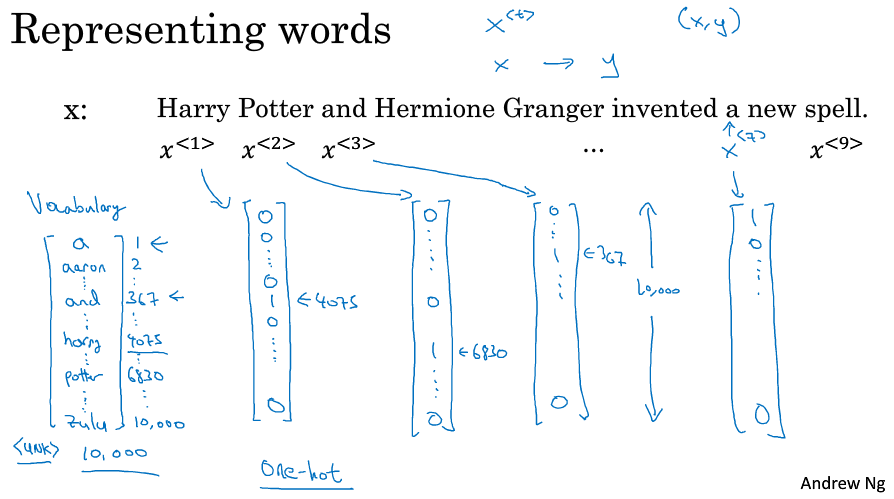 Representing words
x<t>
(x,y)
x → y
x: Harry Potter and Hermione Granger invented a new spell.
x<1> x<2> x<3> ... x<7> x<9>
Vocabulary
a 1 ←
aaron 2
⋮ ⋮
and 367 ←
⋮ ⋮
harry 4075
⋮ ⋮
potter 6830
⋮ ⋮
zulu 10,000
<UNK> 10,000
0
0
⋮
0
1 ← 4075
0
⋮
0
0
⋮
0
1 ← 6830
⋮
0
0
⋮
1 ← 367
⋮
0
10,000
1
0
⋮
0
one-hot
Andrew Ng